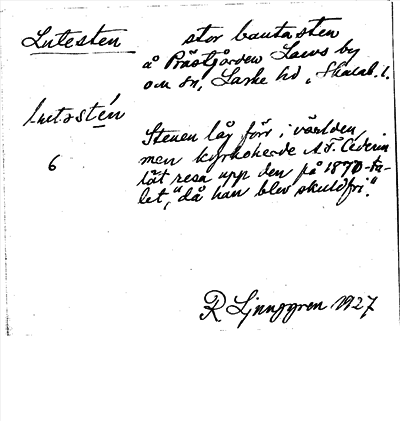 Lutesten stor bautasten
å Prästgården Laws by
och sn, Laske hd, Skarab. l.
lut₂stén
6
Stenen låg förr i världen,
men kyrkoherde A.F. Cederin
lät resa upp den på 1870-ta-
let, "då han blev skuldfri."
R Ljunggren 1927